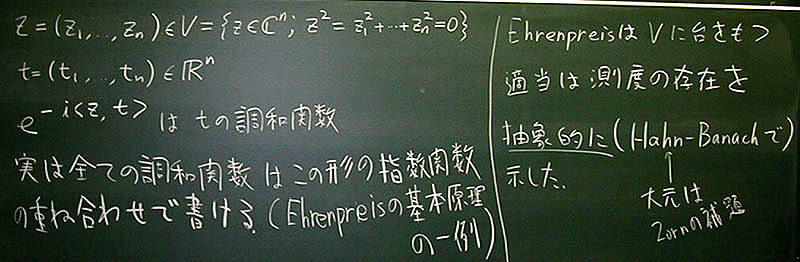 z=(z₁,...,zₙ)∈V={z∈ℂⁿ; z²=z₁²+...+zₙ²=0}
t=(t₁,...,tₙ)∈ℝⁿ
e^{-i<z,t>} は tの調和関数
実は全ての調和関数はこの形の指数関数
の重ね合わせで書ける。(Ehrenpreisの基本原理
の一例)
Ehrenpreisは Vに台をもつ
適当は測度の存在を
抽象的に(Hahn-Banachで)
示した.
↑
大元は
Zornの補題